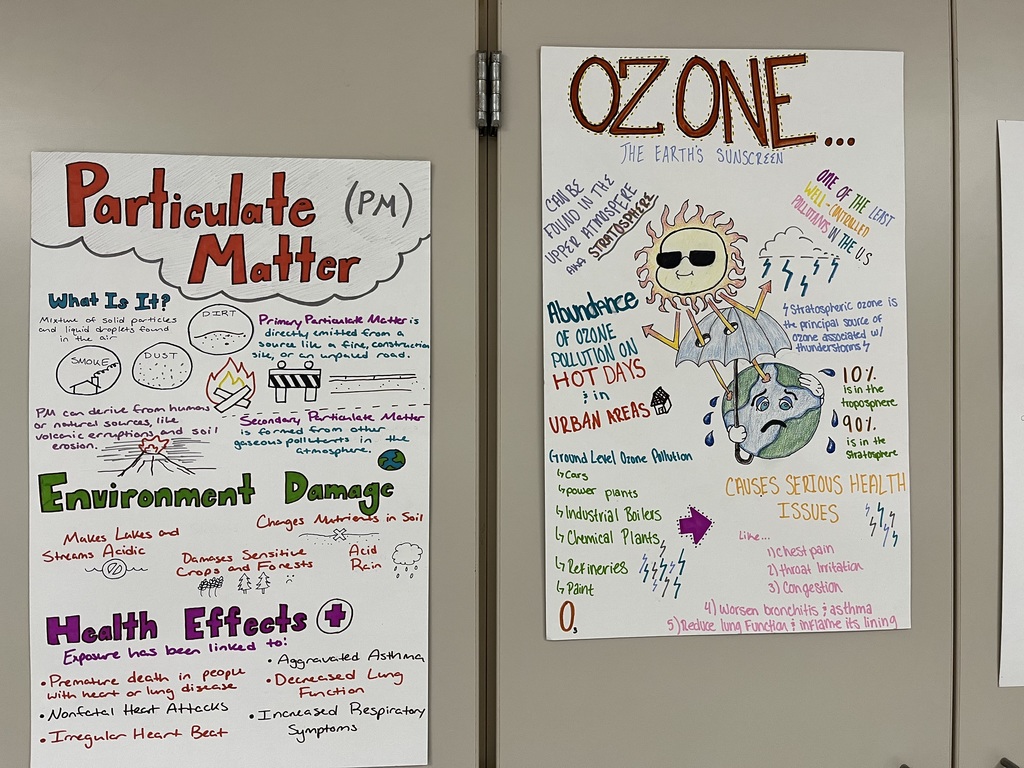 Particulate (PM)
Matter
What Is It?
Mixture of solid particles
and liquid droplets found
in the air
DIRT
SMOKE
DUST
Primary Particulate Matter is
directly emitted from a
source like a fire, construction
site, or an unpaved road.
PM can derive from humans
or natural sources, like
volcanic erruptions and soil
erosion.
Secondary Particulate Matter
is formed from other
gaseous pollutants in the
atmosphere.
Environment Damage
Makes Lakes and
Streams Acidic
Changes Nutrients in Soil
Damages Sensitive
Crops and Forests
Acid
Rain
Health Effects
Exposure has been linked to:
• Premature death in people
with heart or lung disease
• Nonfatal Heart Attacks
• Irregular Heart Beat
• Aggravated Asthma
• Decreased Lung
Function
• Increased Respiratory
Symptoms
OZONE...
THE EARTH'S SUNSCREEN
CAN BE
FOUND IN THE
UPPER ATMOSPERE
AKA STRATOSPHERE
ONE OF THE LEAST
WELL-CONTROLLED
POLLUTANTS IN THE U.S
Abundance
OF OZONE
POLLUTION ON
HOT DAYS
& in
URBAN AREAS
Stratospheric ozone is
the principal source of
ozone associated w/
thunderstorms
10%
is in the
troposphere
90%
is in the
Stratosphere
Ground Level Ozone Pollution
↳ Cars
↳ power plants
↳ Industrial Boilers
↳ Chemical Plants
↳ Refineries
↳ Paint
O3
CAUSES SERIOUS HEALTH
ISSUES
Like...
1) Chest pain
2) throat Irritation
3) Congestion
4) Worsen bronchitis & asthma
5) Reduce lung Function & inflame its lining